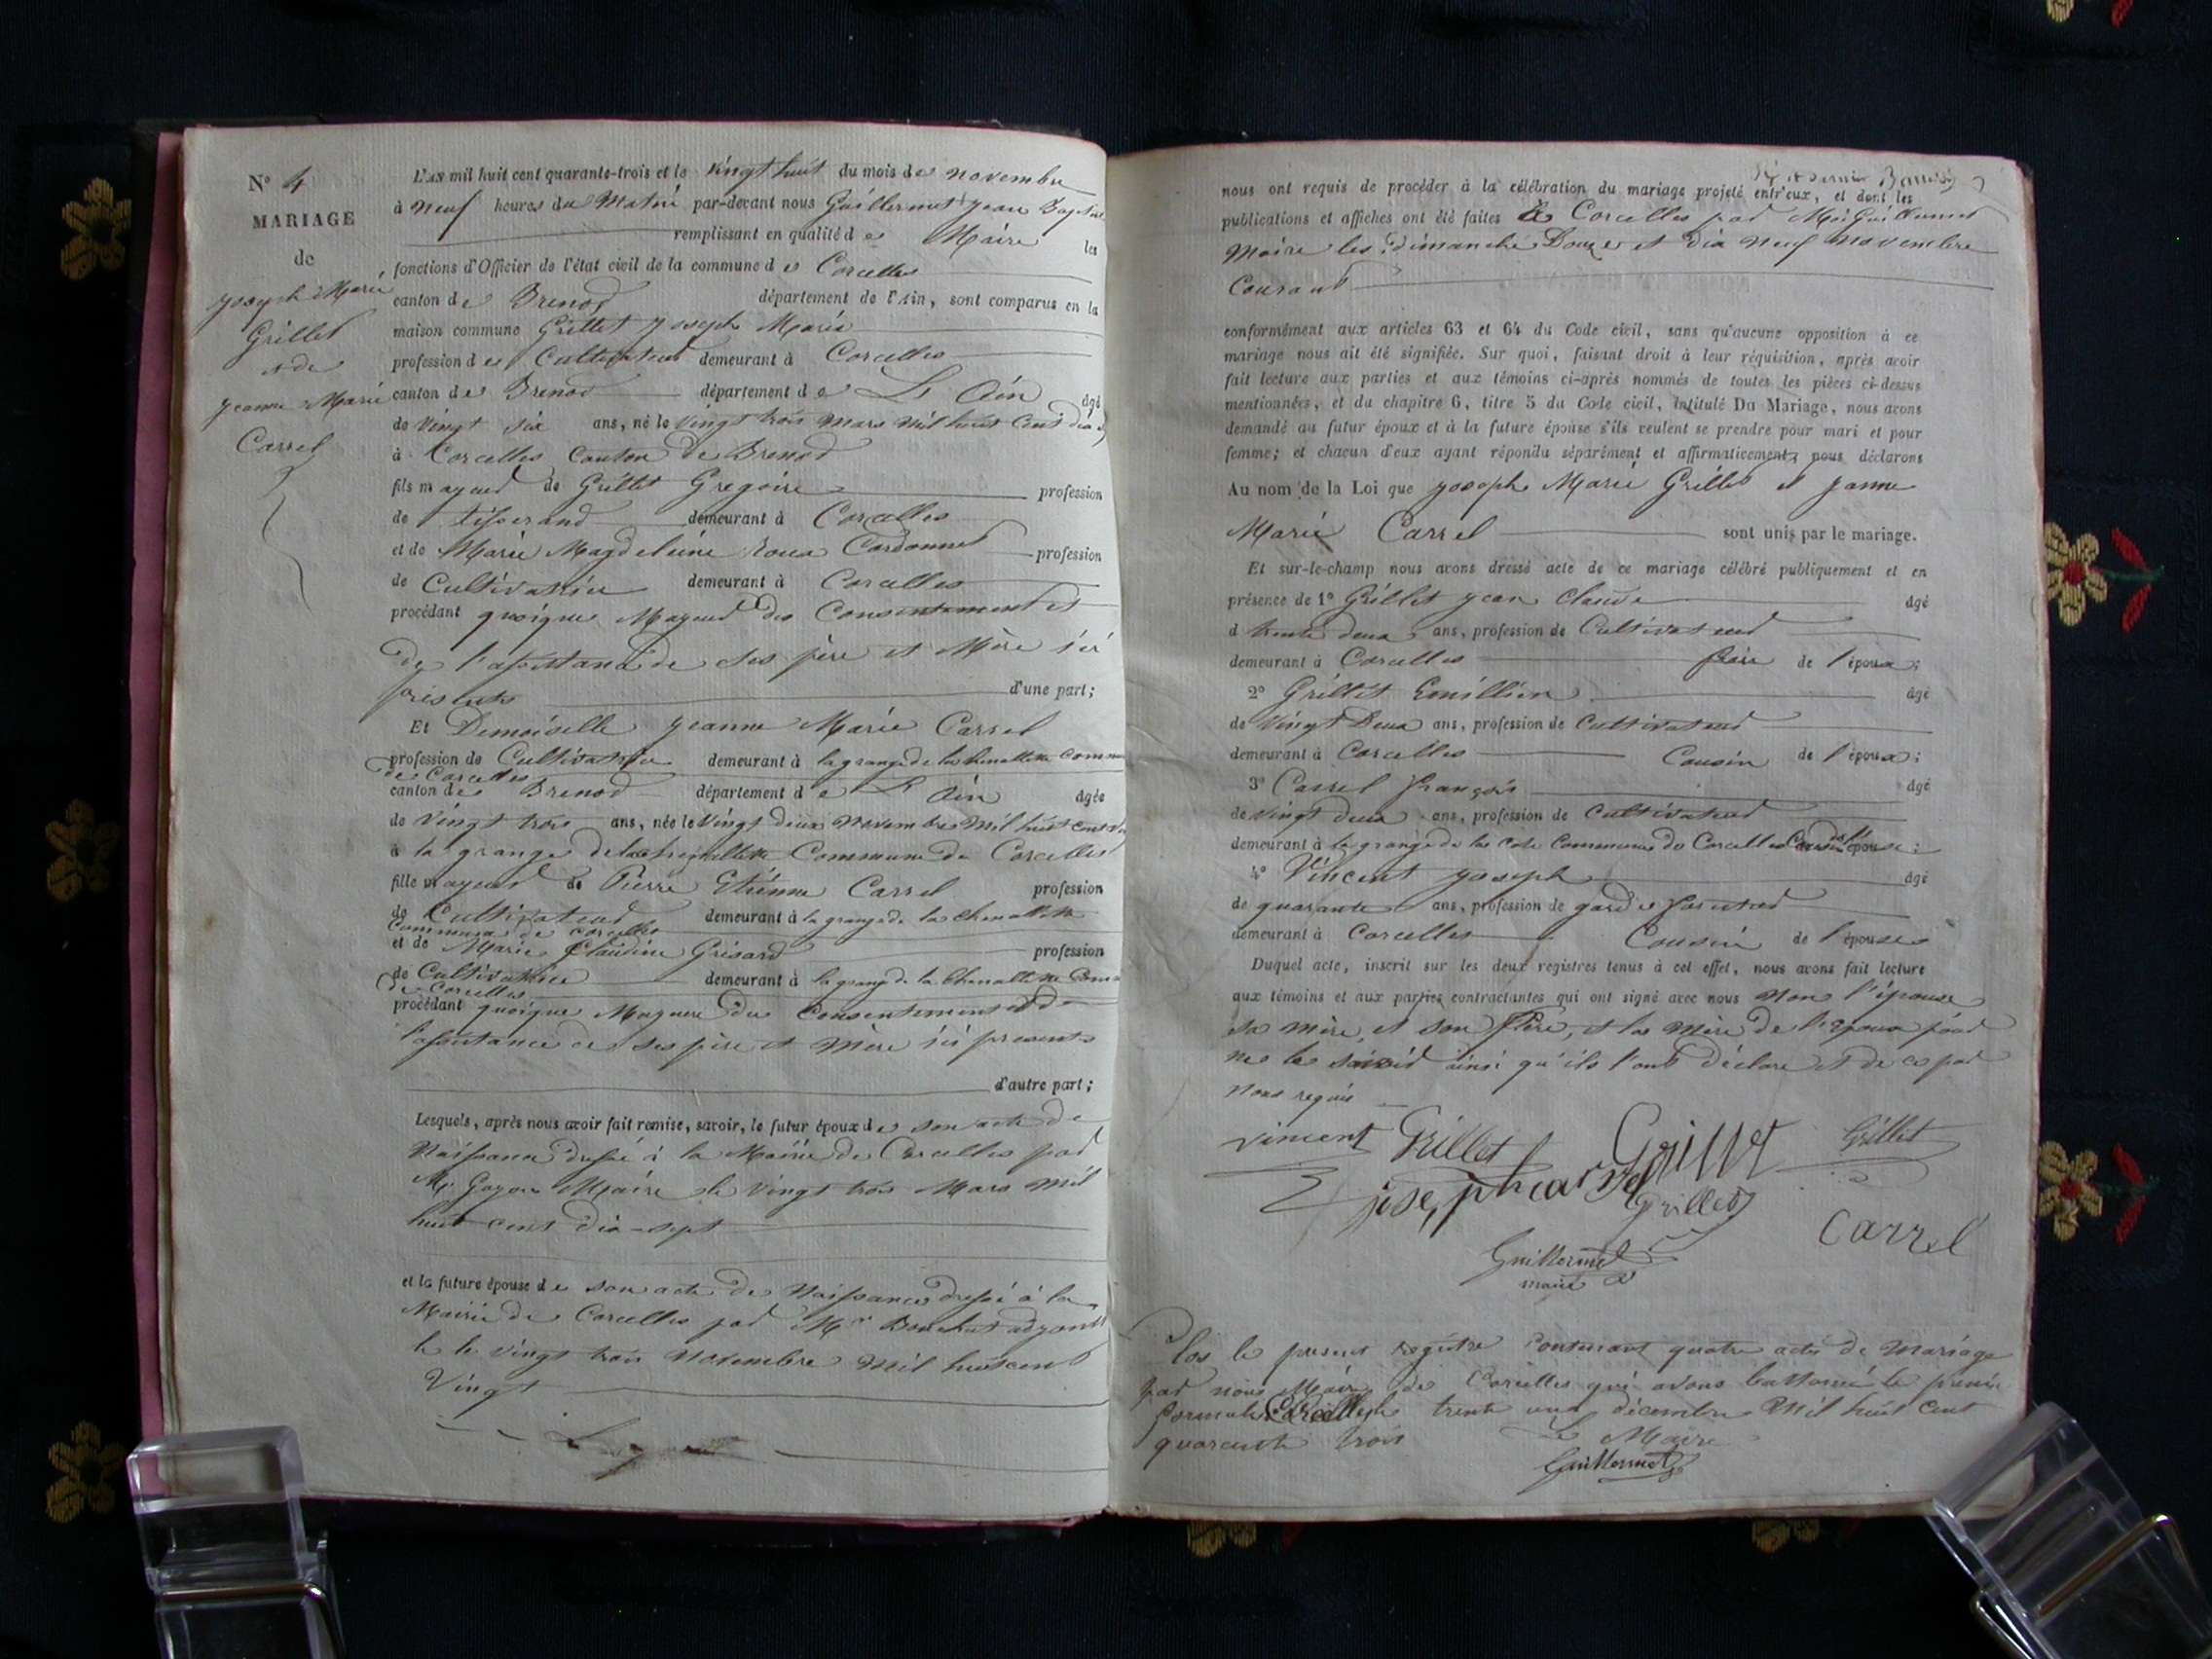 N° 4
MARIAGE
de
Joseph Marie
Grillet
et de
Jeanne Marie
Carrel
L'AN mil huit cent quarante-trois et le vingt huit du mois de novembre
à neuf heures du Matin par-devant nous Guillermet Jean Baptiste
remplissant en qualité de Maire les
fonctions d'Officier de l'état civil de la commune de Corcelles
canton de Brenod département de l'Ain, sont comparus en la
maison commune Grillet Joseph Marie
profession de Cultivateur demeurant à Corcelles
canton de Brenod département de L'Ain âgé
de vingt six ans, né le vingt trois mars mil huit cent dix
à Corcelles Canton de Brenod
fils mageur de Grillet Gregoire profession
de tisserand demeurant à Corcelles
et de Marie Magdeleine Cardonnet profession
de Cultivatrice demeurant à Corcelles
procédant quoique Mageur du Consentement et
de l'assistance de ses père et Mère ici
présents d'une part;
Et Demoiselle Jeanne Marie Carrel
profession de Cultivatrice demeurant à la grange de la chenallette
de Corcelles
canton de Brenod département de L'Ain âgée
de vingt trois ans, née le vingt deux novembre mil huit cent
à la grange de la Commune de Corcelles
fille mageur de Pierre Etienne Carrel profession
de Cultivateur demeurant à la grange de la chenallette
Commune de Corcelles
et de Marie Claudine Grisard profession
de Cultivatrice demeurant à la grange de la chenallette
de Corcelles
procédant quoique Mageure du Consentement et de
l'assistance de ses père et Mère ici presents
d'autre part;
Lesquels, après nous avoir fait remise, savoir, le futur époux de son acte de
Naissance dressé à la Mairie de Corcelles par
Mr Goyon Maire le vingt trois Mars mil
huit cent dix-sept
et la future épouse de son acte de Naissance dressé à la
Mairie de Corcelles par Mr adjoint
le le vingt trois novembre mil huit cent
Vingt
nous ont requis de procéder à la célébration du mariage projeté entr'eux, et dont les
publications et affiches ont été faites à Corcelles par Mr Guillermet
Maire les dimanche Douze et dix neuf novembre
Courant
conformément aux articles 63 et 64 du Code civil, sans qu'aucune opposition à ce
mariage nous ait été signifiée. Sur quoi, faisant droit à leur réquisition, après avoir
fait lecture aux parties et aux témoins ci-après nommés de toutes les pièces ci-dessus
mentionnées, et du chapitre 6, titre 5 du Code civil, intitulé Du Mariage, nous avons
demandé au futur époux et à la future épouse s'ils veulent se prendre pour mari et pour
femme; et chacun d'eux ayant répondu séparément et affirmativement, nous déclarons
Au nom de la Loi que Joseph Marie Grillet et Janne
Marie Carrel sont unis par le mariage.
Et sur-le-champ nous avons dressé acte de ce mariage célébré publiquement et en
présence de 1° Grillet Jean Claude âgé
d trente deux ans, profession de Cultivateur
demeurant à Corcelles frère de l'époux;
2° Grillet Emillien âgé
de vingt Deux ans, profession de Cultivateur
demeurant à Corcelles Cousin de l'époux;
3° Carrel François âgé
de vingt deux ans, profession de Cultivateur
demeurant à la grange de la cote Commune de Corcelles Cousin de l'épouse;
4° Vincent Joseph âgé
de quarante ans, profession de garde forestier
demeurant à Corcelles Cousin de l'épouse
Duquel acte, inscrit sur les deux registres tenus à cet effet, nous avons fait lecture
aux témoins et aux parties contractantes qui ont signé avec nous Non l'épouse
sa mère, et son père, et la mère de l'epoux pour
ne le savoir ainsi qu'ils l'ont déclaré et de ce par
nous requis
vincent Grillet Grillet Grillet
joseph carrel
Grillet
Carrel
Guillermet
maire
Clos le present registre Contenant quatre actes de Mariage
par nous Maire de Corcelles qui avons battonné le
Formule Corcelles le trente un décembre Mil huit cent
quarante trois Le Maire
Guillermet